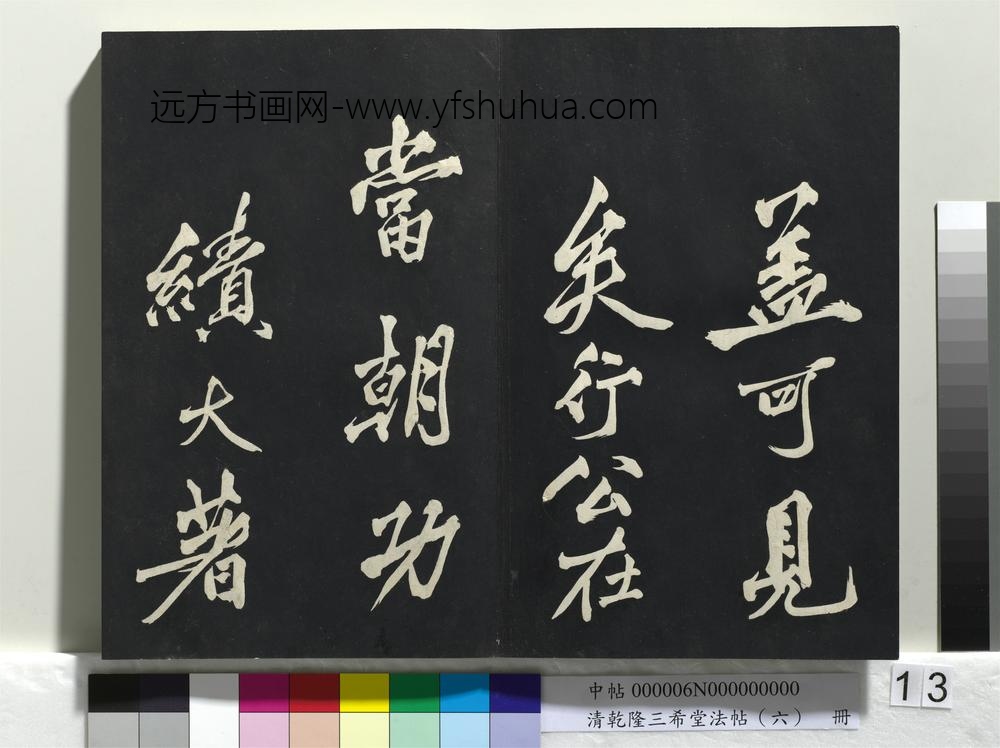 远方书画网-www.yfshuhua.com
盖可見
矣行公在
當朝功
績大著
13
中帖 000006N000000000
清乾隆三希堂法帖（六） 冊